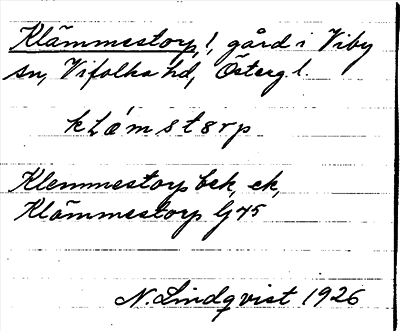 Klämmestorp, !, gård i Viby
sn, Vifolka hd, Österg l.
klæ'mstørp
Klemmestorp bek, ek,
Klämmestorp Gj 45
N. Lindqvist 1926